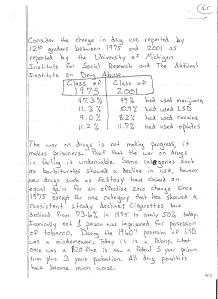 Consider the change in drug use reported by
12th graders between 1975 and 2001 as
reported by the University of Michigan
Institute for Social Research and The National
Institute on Drug Abuse
Class of Class of
1975 2001
47.3% 49% had used marijuana
11.3% 10.9% had used LSD
9.0% 8.2% had used cocaine
11.2% 11.7% had used opiates
The war on drugs is not making progress, it
makes prisoners. Proof that the war on drugs
is failing is undeniable. Some categories such
as barbiturates showed a decline in use, however
new drugs such as Ecstasy have claimed an
equal gain for an effective zero change since
1975 except for one category that has showed a
consistent steady decline: Cigarettes have
declined from 73.6% in 1975 to nearly 50% today.
Ironically not 1 person was imprisoned for possession
of tobacco. During the 1960's possession of LSD
was a misdemeanor. Today it is a felony. What
once was a $20 fine is now a federal 5 year prison
term plus 3 years probation. All drug penalties
have become much worse.